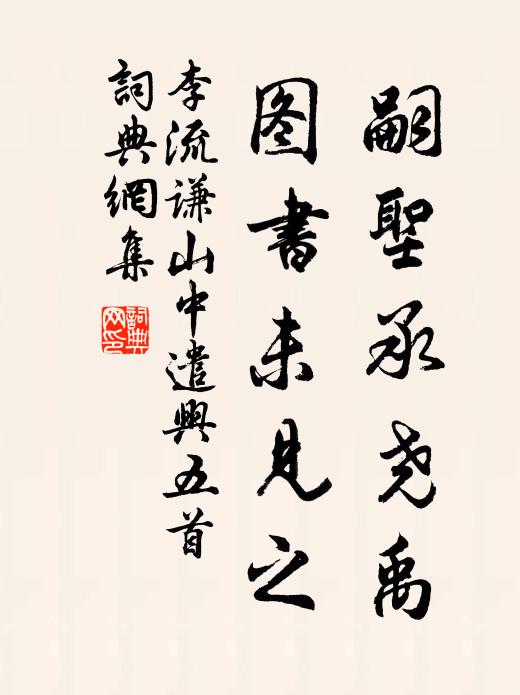 嗣聖承尧禹
图書未見之
李流謙山中遣興五首
詞典網集
詞典網印